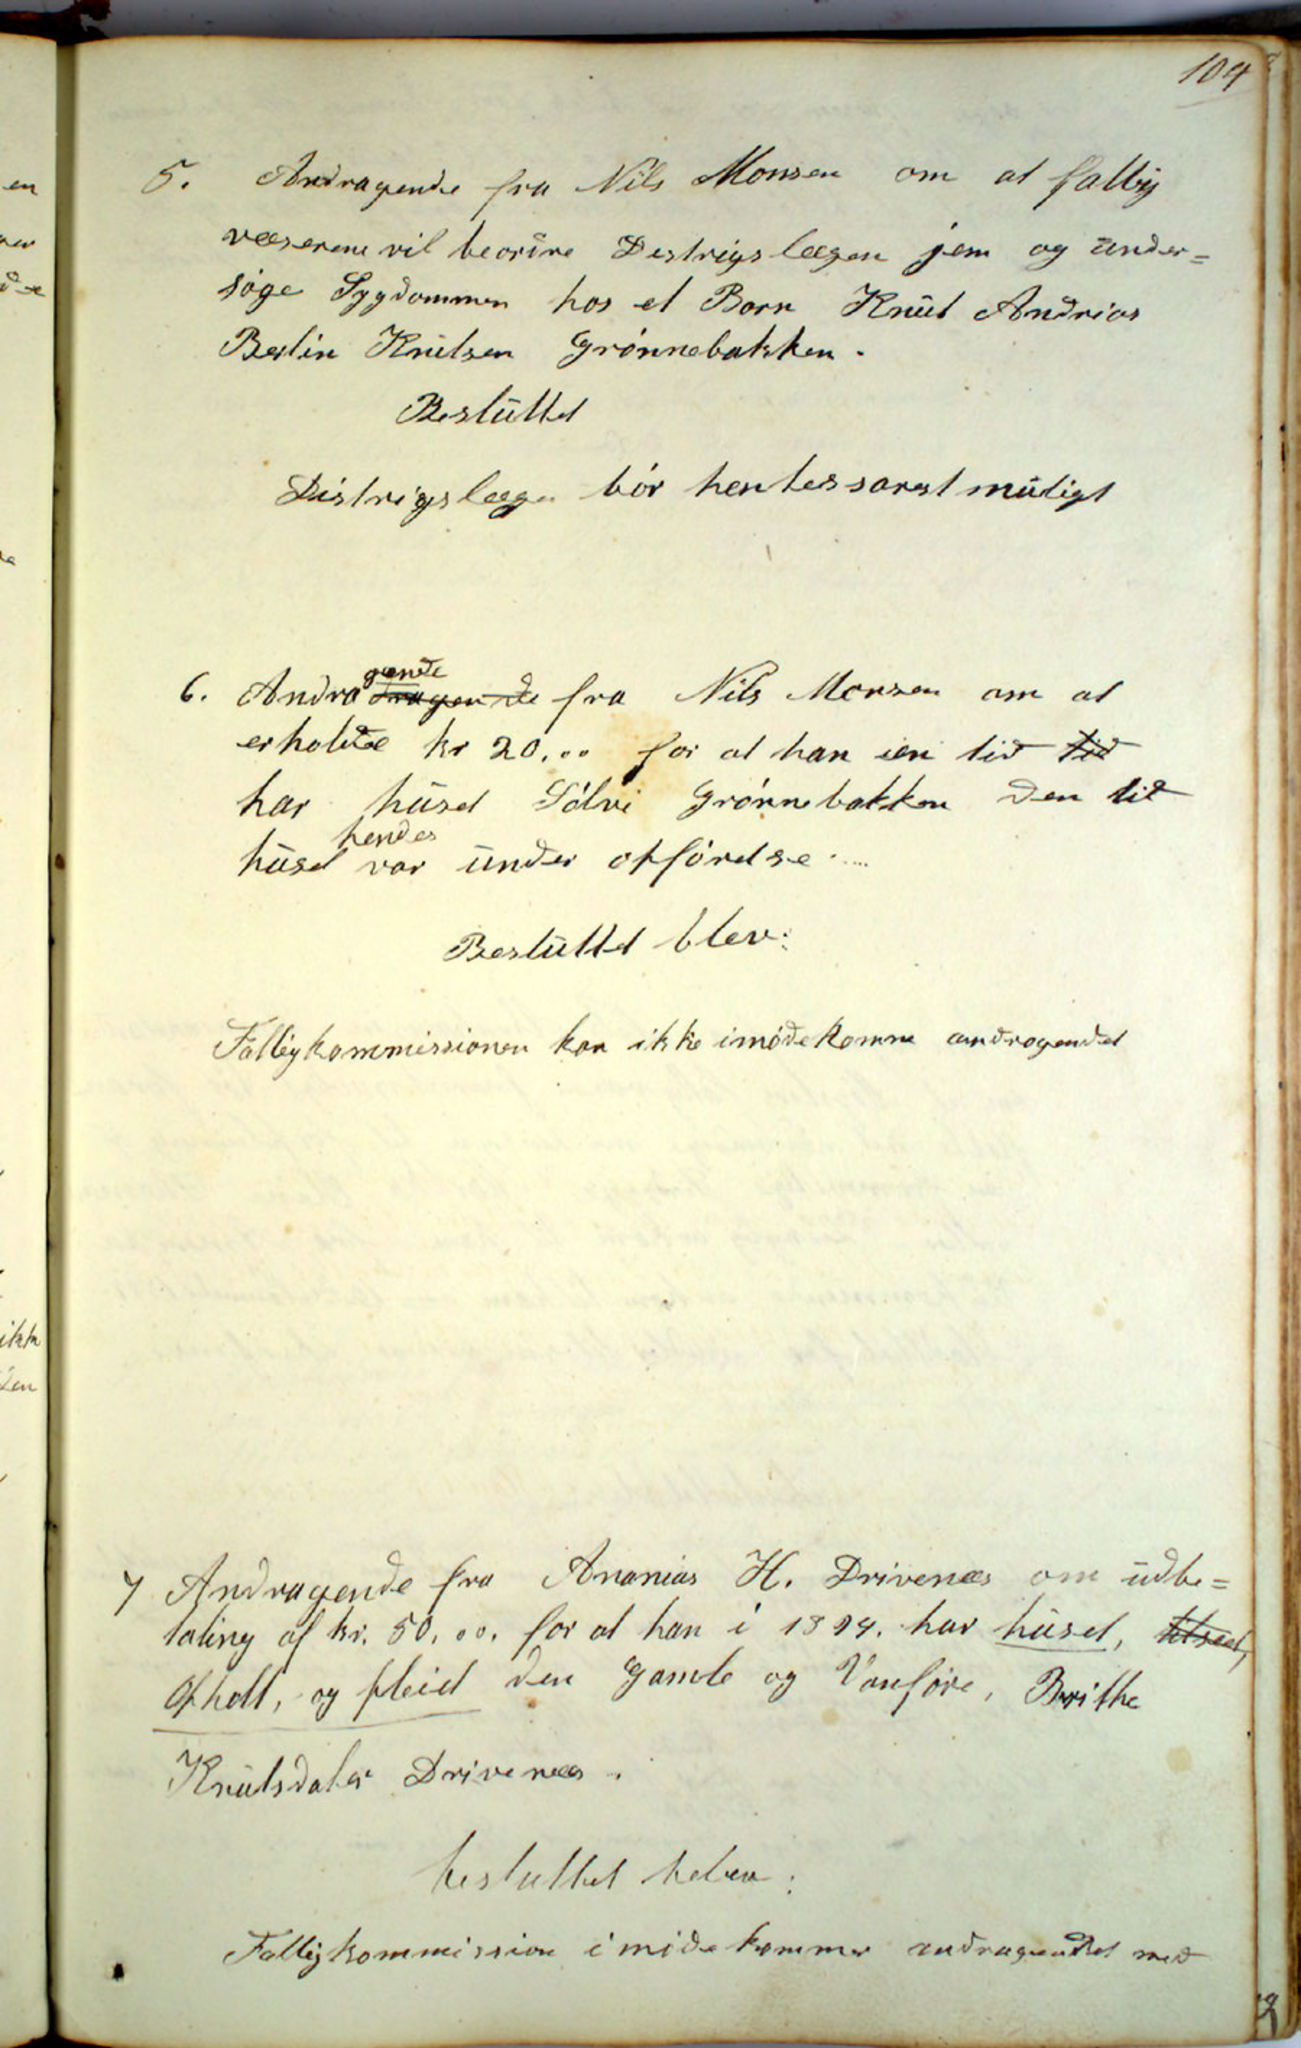 104
5. Andragende fra Nils Monsen om at fattig
væserene vil beordre Destrigslægen jem og under=
søge Sygdommen hos et Barn Knut Andrias
Berlin Knutsen Grønnebakken.
Besluttet
Distrigslæge bør hentes snarest muligt
6. Andragende fra Nils Monsen om at
erholde kr 20,00 for at han i en tid
har huset Sølvi Grønnebakken den tid
huset hendes var under opførelse....
Besluttet blev:
Fattigkommissionen kan ikke imødekomme andragendet
7 Andragende fra Ananias H. Drivenæs om udbe=
taling af kr. 50,00. for at han i 1894. har huset,
Opholt, og pleid den Gamle og Vanføre, Brithe
Knutsdater Drivenæs.
besluttet
Fattigkommission imødekommer andragendet med